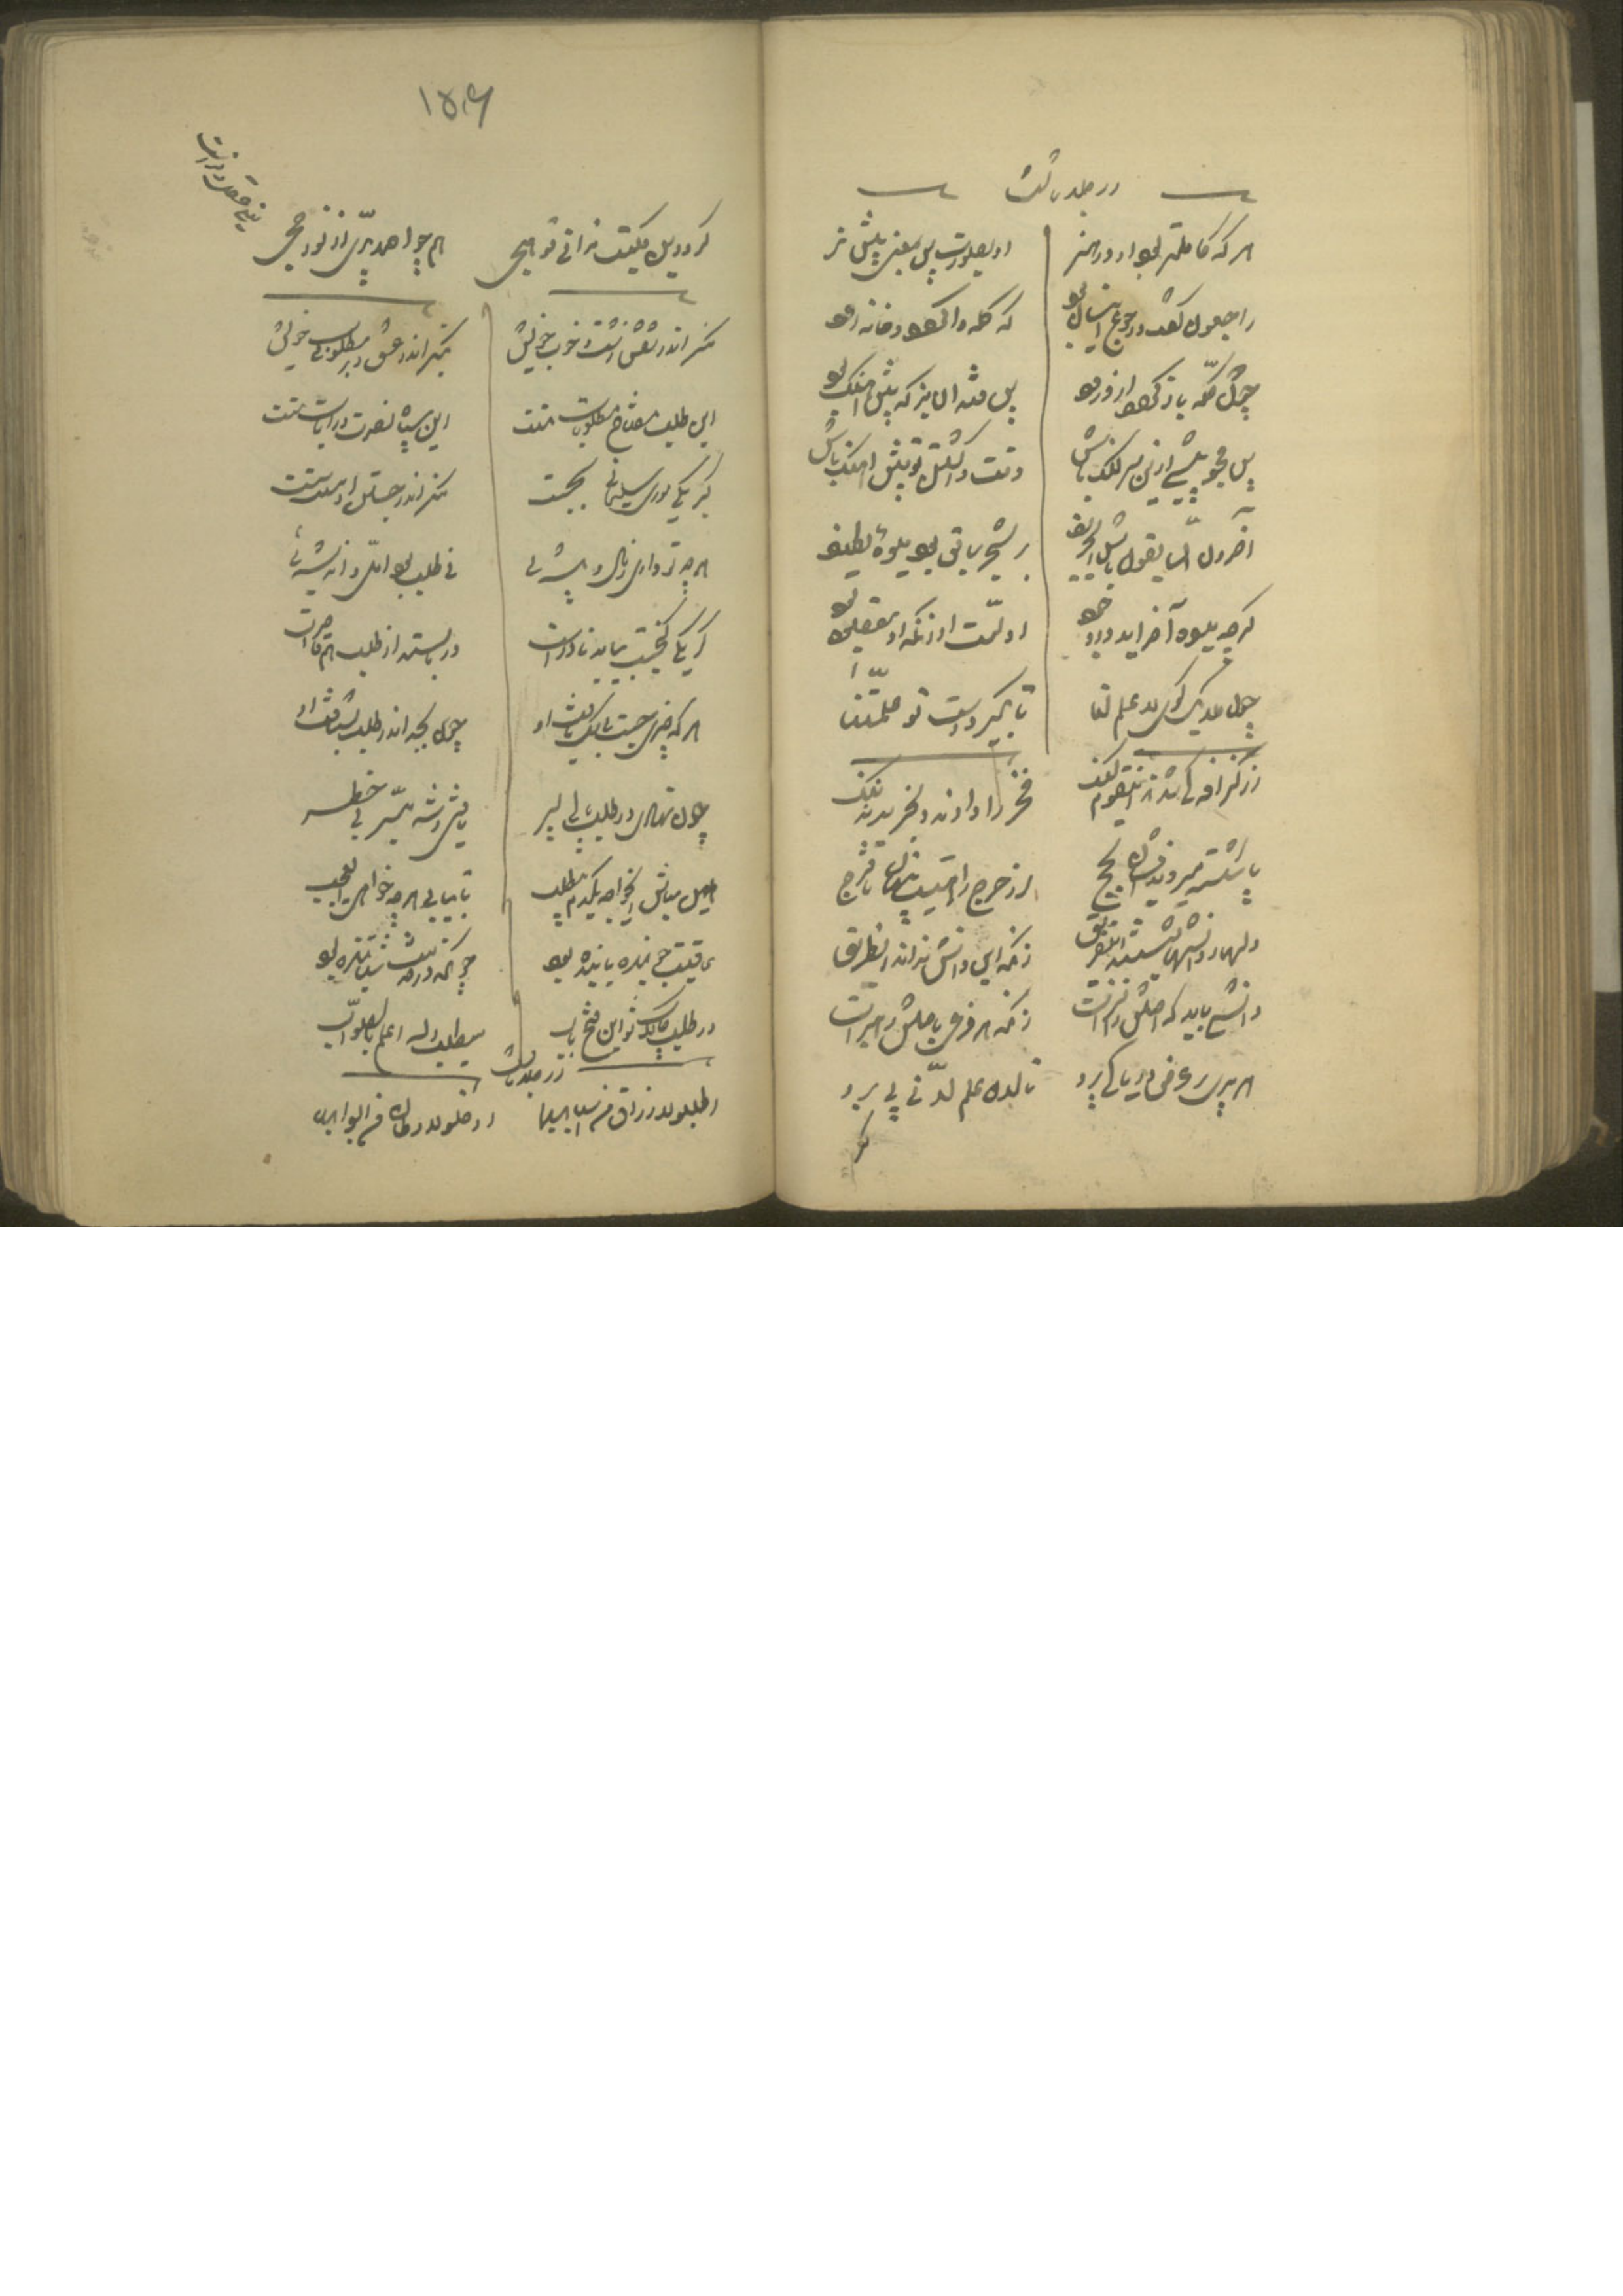 در جلد ثالث
هر که کاملتر بود او در هنر او بصورت پس بمعنی پیش تر
راجعون گفت و رجوع اینسان بود که گله واگردد و خانه رود
چونکه گله باز گردد از ورود پس فتد آن بز که پیش آهنگ بود
پس مجو پیشی ازین سر لنگ باش وقت واگشتن تو پیش آهنگ باش
آخرون السابقون باش ای حریف بر شجر سابق بود میوه لطیف
گرچه میوه آخر آید در وجود اولست او زانکه او مقصود بود
چون ملایک گوی لا علم لنا تا بگیرد دست تو علمتنا
از گزافه کی شدند این قوم لنگ فخر را دادند و بخریدند ننگ
پا شکسته میروند ایشان بحج از حرج راهیست پنهان تا فرج
دل ز دانشها بشستند این فریق زانکه این دانش نداند آن طریق
دانشی باید که اصلش زان سرست زانکه هر فرعی باصلش رهبرست
هر پری بر عرض دریا کی پرد تا لدن علم لدنی می برد
گر
۱۵۶
گر درین مکتب ندانی تو هجی همچو احمد پری از نور حجی
منگر اندر نقش زشت و خوب خویش بنگر اندر عشق و بر مطلوب خویش
این طلب مفتاح مطلوبات تست این سپاه نصرت و رایات تست
گر یکی موری سلیمانی بجست منگر اندر جستن او سست سست
هر چه تو داری ز مال و پیشه ئی نی طلب بود اول و اندیشه ئی
گر یکی گنجی بیابد نادرست در باستد از طلب هم قاصرست
هر که چیزی جست بیشک یافت او چون بجد اندر طلب بشتافت او
چون نهادی در طلب پا ای پسر یافتی و شد میسر بی خطر
هین مباش ای خواجه یکدم بی طلب تا بیابی هر چه خواهی ای عجب
عاقبت جوینده یابنده بود چونکه در خدمت شتابنده بود
در طلب چالاک شو این فتح باب میطلب والله اعلم بالصواب
در جلد ثالث
اطلبوا الارزاق من اسبابها ادخلوا الاوطان من ابوابها